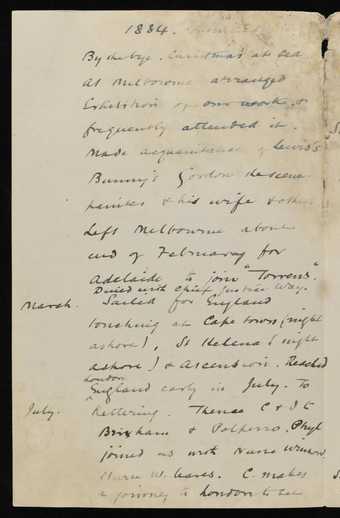 1884.
By the bye. Christmas at sea
At Melbourne arranged
Exhibition of our work, &
frequently attended it.
Made acquaintance of Lewis's
Bunny's Gordon the scene
painter & his wife & others
Left Melbourne about
end of February for
Adelaide to join "Torrens".
Dined with Chief Justice Way.
March. Sailed for England
touching at Cape town (night
ashore), St Helena (night
ashore) & Ascension. Reached
London
England early in July. To
July. Kettering. Thence C & I to
Brixham & Polperro. Phyl
joined us with Nurse
Nurse W. leaves. C. makes
a journey to London to see